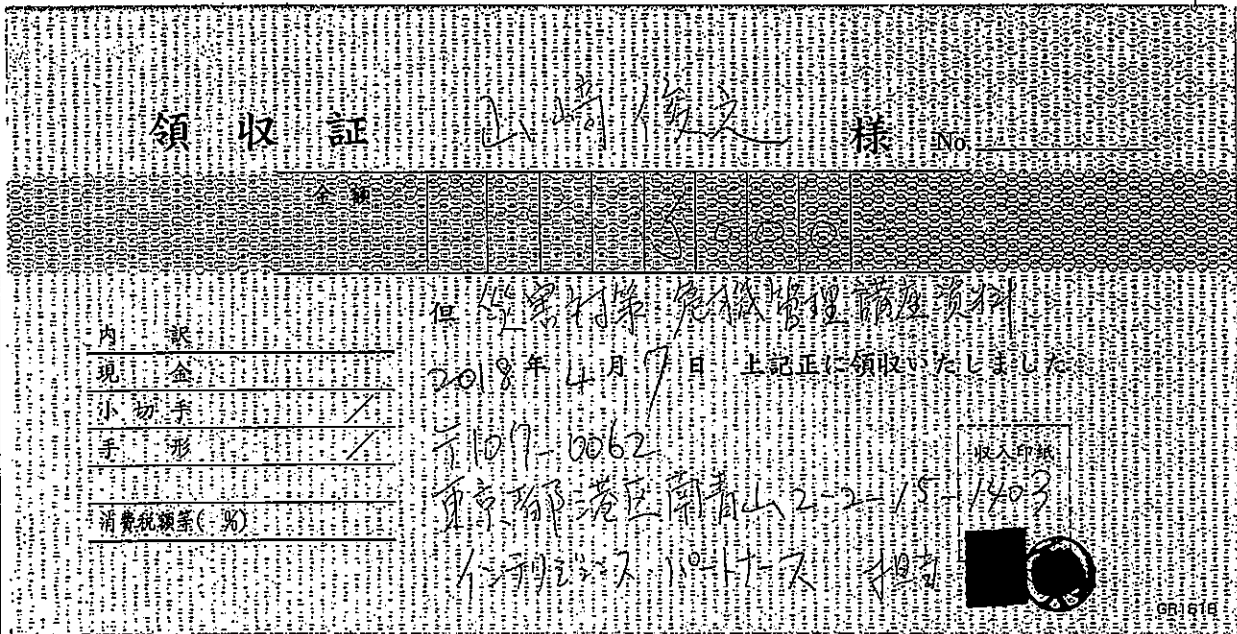 領収証 山崎俊之 様 No.
金額 5000
但 災害対策 危機管理講座資料
2018年4月7日 上記正に領収いたしました
内訳
現金
小切手
手形
消費税額等( %)
〒107-0062
東京都港区南青山2-2-15-1403
インテリジェンスパートナーズ 担当
収入印紙
GR1616